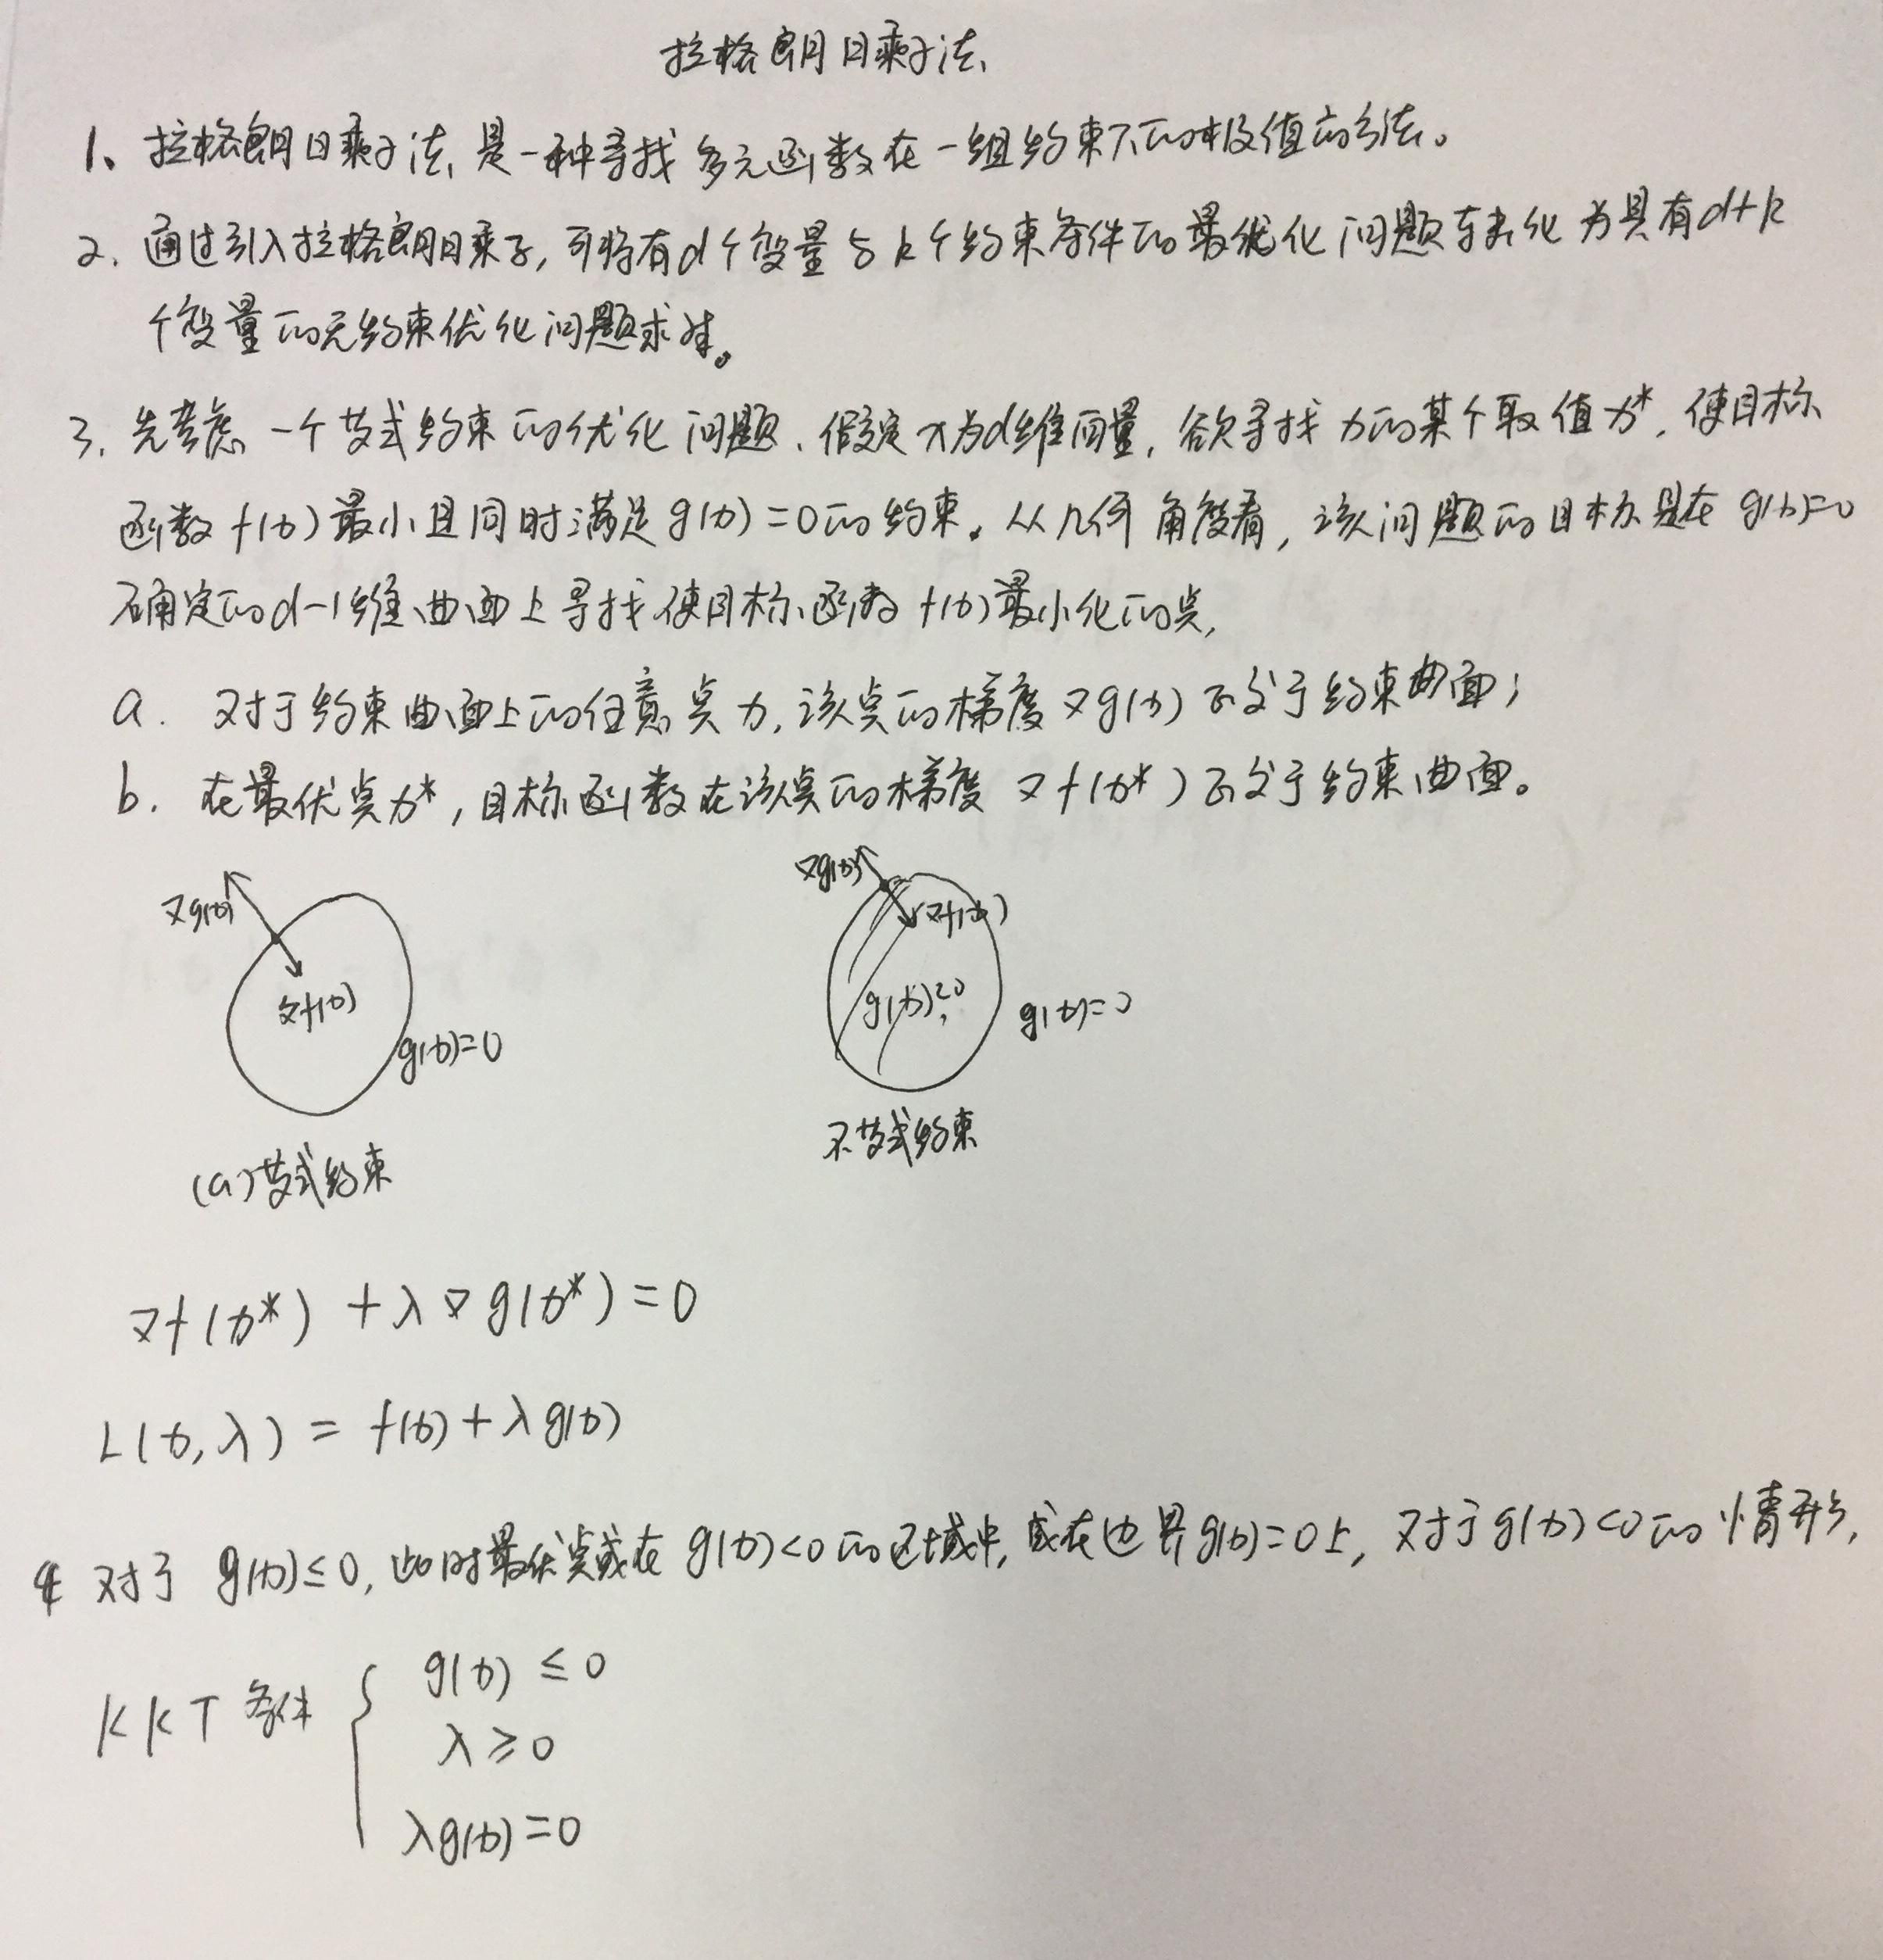 拉格朗日乘子法
1、拉格朗日乘子法是一种寻找多元函数在一组约束下的极值的方法。
2. 通过引入拉格朗日乘子,可将有d个变量与k个约束条件的最优化问题转化为具有d+k
个变量的无约束优化问题求解。
3. 先考虑一个等式约束的优化问题、假定x为d维向量,欲寻找x的某个取值x*,使目标
函数f(x)最小且同时满足g(x)=0的约束。从几何角度看,该问题的目标是在g(x)=0
确定的d-1维曲面上寻找使目标函数f(x)最小化的点,
a. 对于约束曲面上的任意点x,该点的梯度∇g(x)正交于约束曲面;
b. 在最优点x*,目标函数在该点的梯度∇f(x*)正交于约束曲面。
∇g(x)
∇f(x)
g(x)=0
(a)等式约束
∇g(x)
∇f(x)
g(x)≤0
g(x)=0
不等式约束
∇f(x*)+λ∇g(x*)=0
L(x,λ)=f(x)+λg(x)
4 对于g(x)≤0,此时最优点或在g(x)<0的区域中,或在边界g(x)=0上,对于g(x)<0的情形,
KKT条件 { g(x)≤0
λ≥0
λg(x)=0